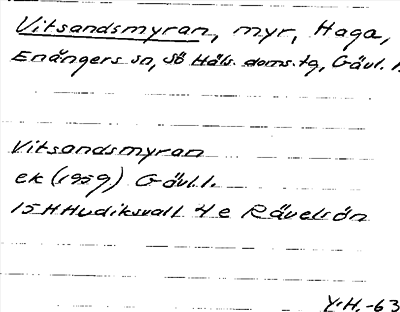 Vitsandsmyran, myr, Haga,
Enångers sn, SÖ Häls. doms.tg, Gävl. l.
Vitsandsmyran
ek (1959) Gävl. l.
15HHudiksvall 4e Rävelsön
Y.H.-63